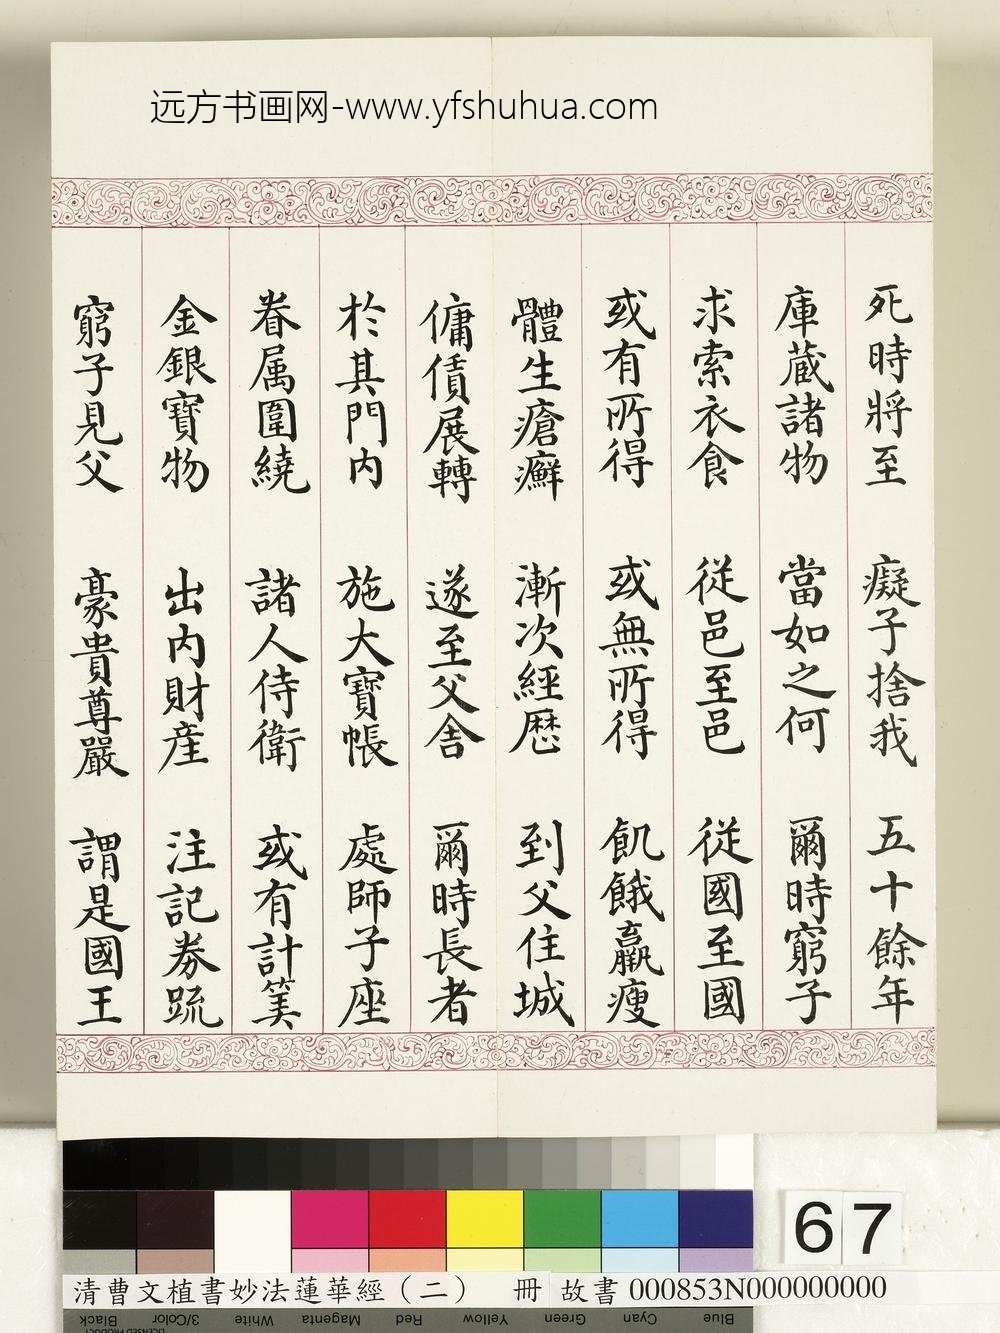 远方书画网-www.yfshuhua.com
死時將至 癡子捨我 五十餘年
庫蔵諸物 當如之何 爾時窮子
求索衣食 從邑至邑 從國至國
或有所得 或無所得 飢餓羸瘦
體生瘡癬 漸次經歷 到父住城
傭賃展轉 遂至父舍 爾時長者
於其門内 施大寶帳 處師子座
眷属圍繞 諸人侍衛 或有計筭
金銀寶物 出内財産 注記券疏
窮子見父 豪貴尊嚴 謂是國王
67
清曹文植書妙法蓮華經（二） 冊 故書000853N000000000
Black 3/Color White Magenta Red Yellow Green Cyan Blue